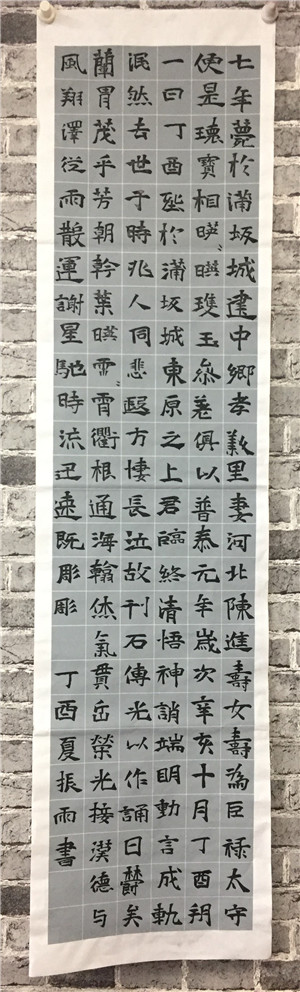 七年薨於蒲坂城建中鄉孝義里妻河北陳進壽女壽為巨祿太守
便是瓌寶相暎〻暎瓊玉叅差俱以普泰元年歲次辛亥十月丁酉朔
一日丁酉葬於蒲坂城東原之上君臨終清悟神誚端明動言成軌
泯然去世于時兆人同悲遐方悽長泣故刊石傳光以作誦曰欝矣
蘭胄茂乎芳朝幹葉暎〻霄衢根通海翰休氣貫岳榮光接漢德与
風翔澤從雨散運謝星馳時流迅速既彫彫 丁酉夏振雨書